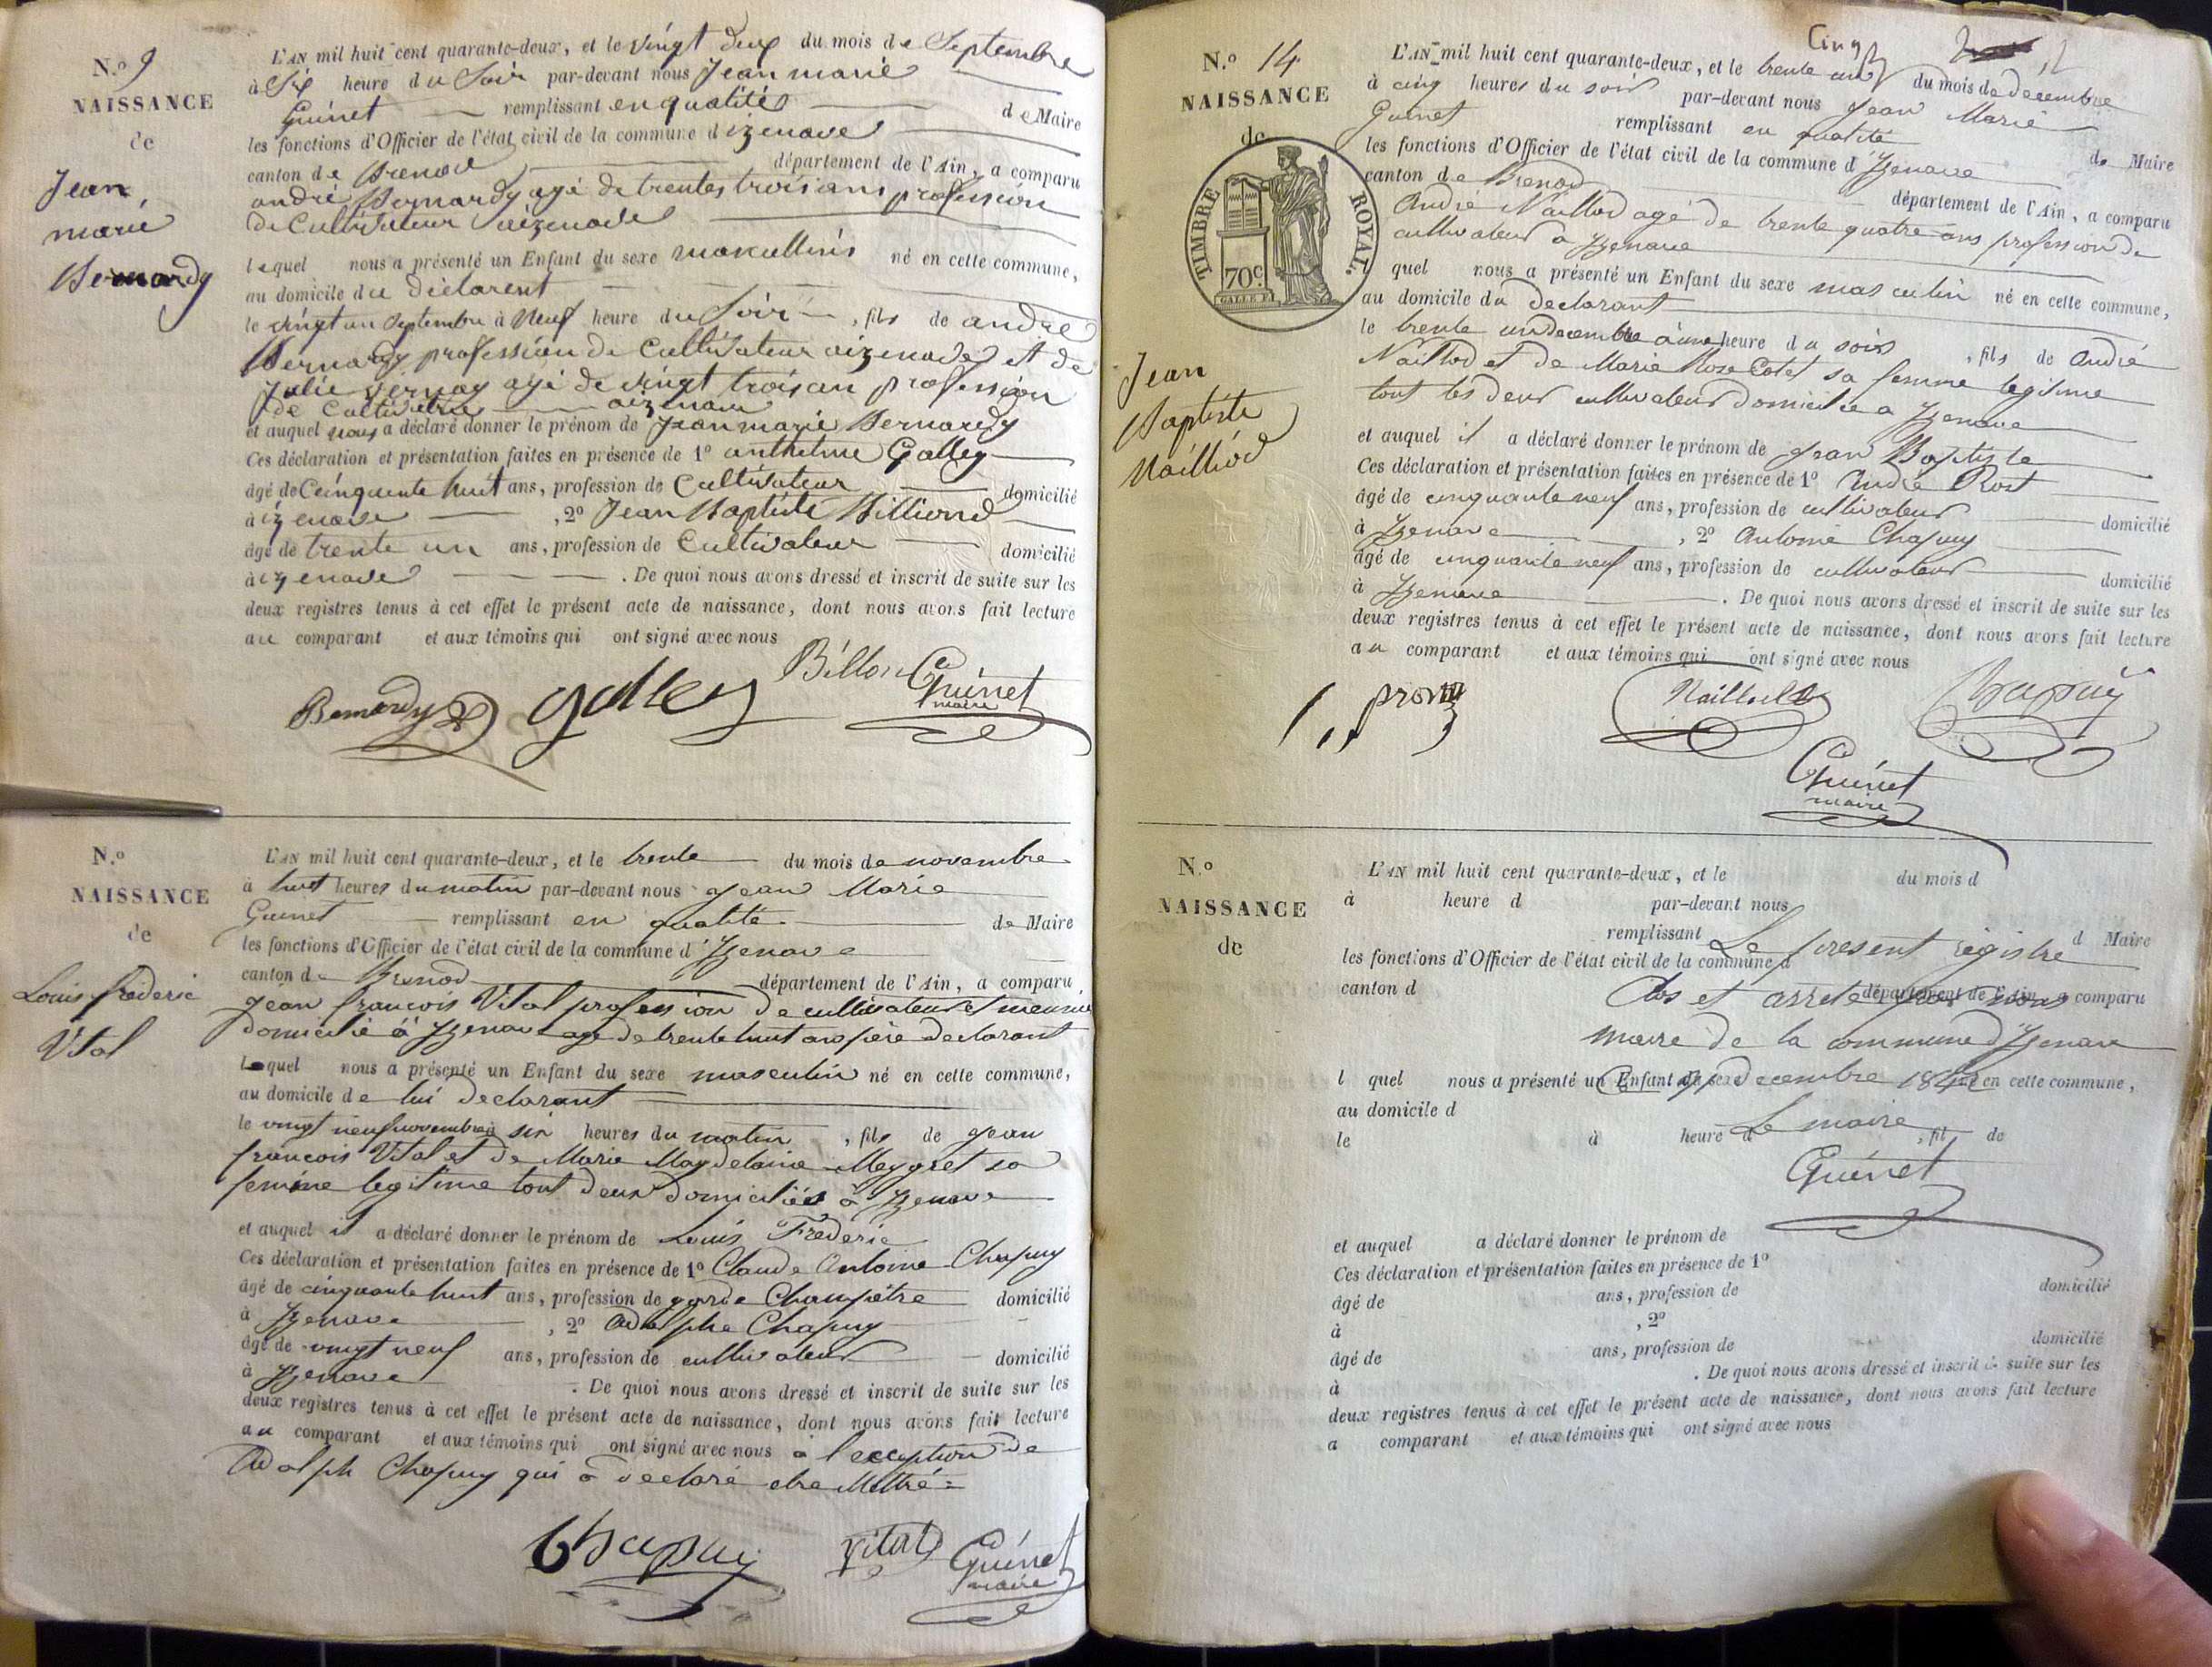 N.º 9
NAISSANCE
de
Jean
marie
Bernardy
L'AN mil huit cent quarante-deux, et le vingt deux du mois de Septembre
à Six heure du Soir par-devant nous Jean marie
Guinet remplissant en qualités de Maire
les fonctions d'Officier de l'état civil de la commune d izenave
canton de Brenod département de l'Ain, a comparu
andré Bernardy agé de trentes trois ans profession
de Cultivateur aizenave
lequel nous a présenté un Enfant du sexe né en cette commune,
au domicile du déclarent
le vingt un Septembre à Neuf heure du Soir, fils de andré
Bernardy profession de Cultivateur aizenave et de
Julie agé de vingt trois an profession
de aizenave
et auquel nous a déclaré donner le prénom de Jean marie Bernardy
Ces déclaration et présentation faites en présence de 1º anthelme Galley
âgé de Cinquente huit ans, profession de Cultivateur domicilié
à izenave , 2º Jean Baptiste Billiond
âgé de trente un ans, profession de Cultivateur domicilié
à izenave . De quoi nous avons dressé et inscrit de suite sur les
deux registres tenus à cet effet le présent acte de naissance, dont nous avons fait lecture
au comparant et aux témoins qui ont signé avec nous
Bernardy galley Billon Guinet
maire
N.º
NAISSANCE
de
Louis frederic
Vital
L'AN mil huit cent quarante-deux, et le trente du mois de novembre
à huit heures du matin par-devant nous Jean Marie
Guinet remplissant en qualité de Maire
les fonctions d'Officier de l'état civil de la commune d'Izenave
canton de Brenod département de l'Ain, a comparu
Jean francois Vital profession de cultivateur et meunier
domicilié à Izenave age de trente huit ans père declarant
Lequel nous a présenté un Enfant du sexe masculin né en cette commune,
au domicile de lui declarant
le vingt neuf novembre à six heures du matin, fils de Jean
francois Vital et de Marie Magdelaine Meygret sa
femme legitime tout deux domiciliés à Izenave
et auquel il a déclaré donner le prénom de Louis Frederic
Ces déclaration et présentation faites en présence de 1º Claude Antoine Chapuy
âgé de cinquante huit ans, profession de garde Champêtre domicilié
à Izenave , 2º Adolphe Chapuy
âgé de vingt neuf ans, profession de cultivateur domicilié
à Izenave . De quoi nous avons dressé et inscrit de suite sur les
deux registres tenus à cet effet le présent acte de naissance, dont nous avons fait lecture
au comparant et aux témoins qui ont signé avec nous a l'exception de
Adolph Chapuy qui a declaré etre
Chapuy vital Guinet
maire
N.º 14
NAISSANCE
de
TIMBRE ROYAL.
70c.
Jean
Baptiste
Nailliod
Cinq
L'AN mil huit cent quarante-deux, et le trente un du mois de decembre
à cinq heures du soir par-devant nous Jean Marie
Guinet remplissant en qualité de Maire
les fonctions d'Officier de l'état civil de la commune d'Izenave
canton de Brenod département de l'Ain, a comparu
André Naillod agé de trente quatre ans profession de
cultivateur a Izenave
l quel nous a présenté un Enfant du sexe masculin né en cette commune,
au domicile du declarant
le trente un decembre à une heure du soir, fils de André
Naillod et de Marie Rose Cotet sa femme legitime
tout les deux cultivateur domicilie a Izenave
et auquel il a déclaré donner le prénom de Jean Baptiste
Ces déclaration et présentation faites en présence de 1º André Prost
âgé de cinquante neuf ans, profession de cultivateur domicilié
à Izenave , 2º Antoine Chapuy
âgé de cinquante neuf ans, profession de cultivateur domicilié
à Izenave . De quoi nous avons dressé et inscrit de suite sur les
deux registres tenus à cet effet le présent acte de naissance, dont nous avons fait lecture
au comparant et aux témoins qui ont signé avec nous
Chapuy
Guinet
maire
N.º
NAISSANCE
de
L'AN mil huit cent quarante-deux, et le du mois d
à heure d par-devant nous
remplissant d Maire
Le present registre
les fonctions d'Officier de l'état civil de la commune d
canton d département de l'Ain, a comparu
Clos et arreté par nous
maire de la commune d'Izenave
l quel nous a présenté un Enfant du sexe né en cette commune,
Ce 31 decembre 1842
au domicile d
Le maire
le à heure d , fil de
Guinet
et auquel a déclaré donner le prénom de
Ces déclaration et présentation faites en présence de 1º
âgé de ans, profession de domicilié
à , 2º
âgé de ans, profession de domicilié
à . De quoi nous avons dressé et inscrit de suite sur les
deux registres tenus à cet effet le présent acte de naissance, dont nous avons fait lecture
a comparant et aux témoins qui ont signé avec nous